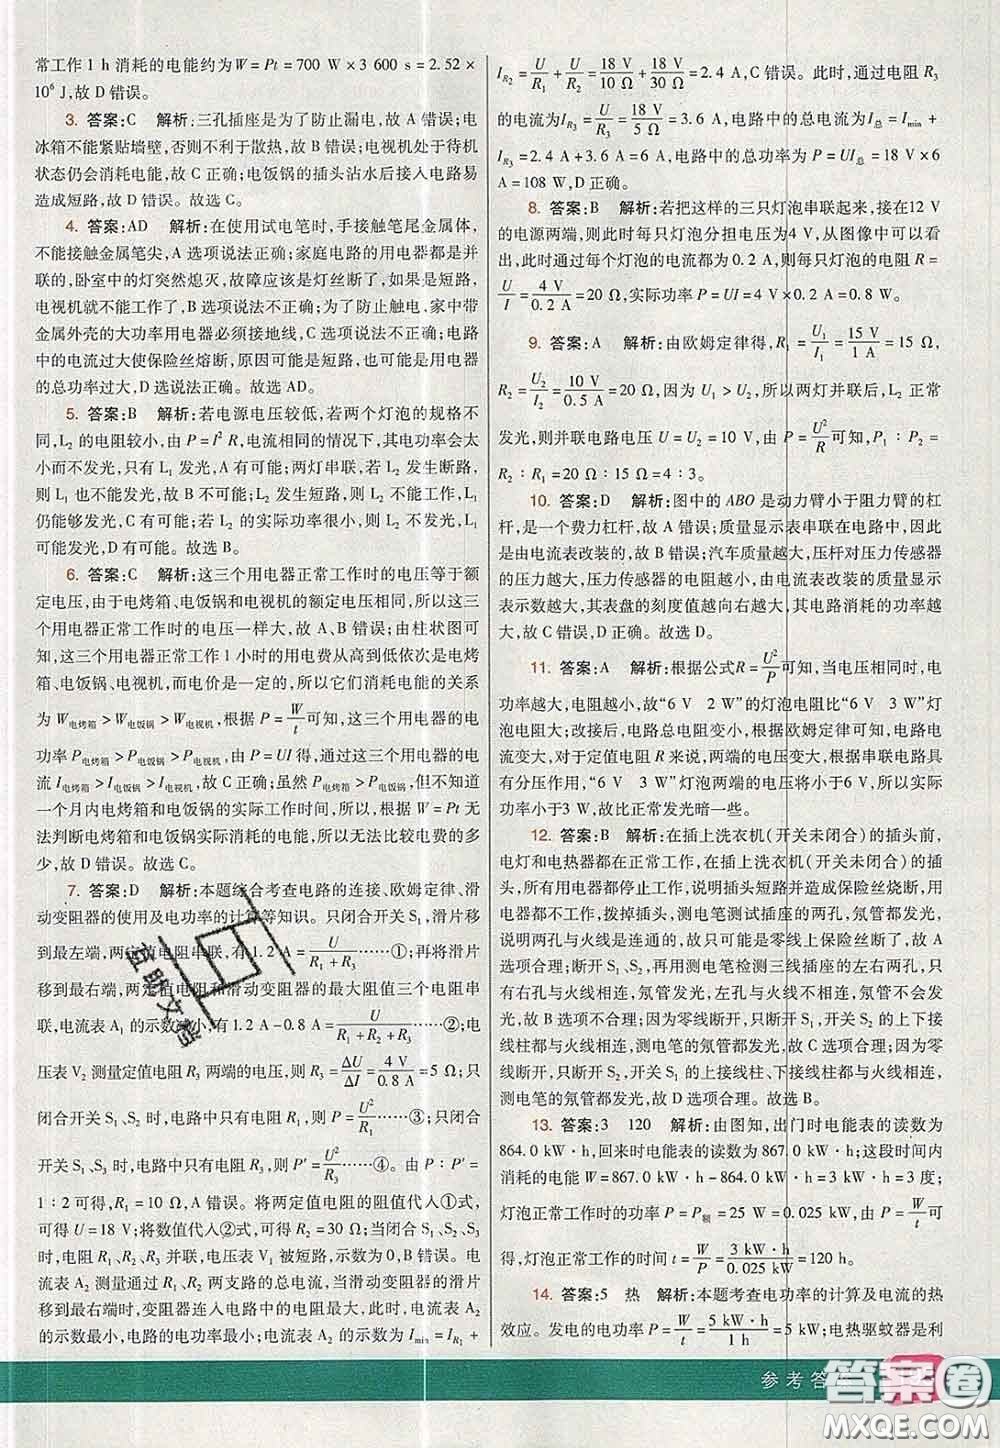 常工作 1 h 消耗的电能约为 W = Pt = 700 W × 3 600 s = 2.52 ×
10⁶ J,故 D 错误。
3. 答案:C 解析:三孔插座是为了防止漏电,故 A 错误;电
冰箱不能紧贴墙壁,否则不利于散热,故 B 错误;电视机处于待机
状态仍会消耗电能,故 C 正确;电饭锅的插头沾水后接入电路易
造成短路,故 D 错误。故选 C。
4. 答案:AD 解析:在使用试电笔时,手接触笔尾金属体,
不能接触金属笔尖,A 选项说法正确;家庭电路的用电器都是并
联的,卧室中的灯突然熄灭,故障应该是灯丝断了,如果是短路,
电视机就不能工作了,B 选项说法不正确;为了防止触电,家中带
金属外壳的大功率用电器必须接地线,C 选项说法不正确;电路
中的电流过大使保险丝熔断,原因可能是短路,也可能是用电器
的总功率过大,D 选说法正确。故选 AD。
5. 答案:B 解析:若电源电压较低,若两个灯泡的规格不
同,L₂ 的电阻较小,由 P = I²R,电流相同的情况下,其电功率会太
小而不发光,只有 L₁ 发光,A 有可能;两灯串联,若 L₂ 发生断路,
则 L₁ 也不可能发光,故 B 不可能;L₂ 发生短路,则 L₂ 不发光,L₁
仍能够发光,C 有可能;若 L₂ 的实际功率很小,则 L₂ 不发光,L₁
可能发光,D 有可能。故选 B。
6. 答案:C 解析:这三个用电器正常工作时的电压等于额
定电压,由于电烤箱、电饭锅和电视机的额定电压相同,所以这三
个用电器正常工作时的电压一样大,故 A、B 错误;由柱状图可
知,这三个用电器正常工作 1 小时的用电费从高到低依次是电烤
箱、电饭锅、电视机,而电价是一定的,所以它们消耗电能的关系
为 W电烤箱 > W电饭锅 > W电视机,根据 P = W/t 可知,这三个用电器的电
功率 P电烤箱 > P电饭锅 > P电视机,由 P = UI 得,通过这三个用电器的电
流 I电烤箱 > I电饭锅 > I电视机,故 C 正确;虽然 P电烤箱 > P电饭锅,但不知道
一个月内电烤箱和电饭锅的实际工作时间,所以,根据 W = Pt 无
法判断电烤箱和电饭锅实际消耗的电能,所以无法比较电费的多
少,故 D 错误。故选 C。
7. 答案:D 解析:本题综合考查电路的连接、欧姆定律、滑
动变阻器的使用及电功率的计算等知识。只闭合开关 S₁,滑片移
到最左端,两定值电阻串联,有 1.2 A = U/(R₁ + R₃)……①;再将滑片
移到最右端,两定值电阻和滑动变阻器的最大阻值三个电阻串
联,电流表 A₁ 的示数减小,有 1.2 A − 0.8 A = U/(R₁ + R₂ + R₃)……②;电
压表 V₂ 测量定值电阻 R₃ 两端的电压,则 R₃ = ΔU/ΔI = 4 V/0.8 A = 5 Ω;只
闭合开关 S₁、S₂ 时,电路中只有电阻 R₁,则 P = U²/R₁……③;只闭合
S₁、S₃ 时,电路中只有电阻 R₃,则 P′ = U²/R₃……④。由 P : P′ =
1 : 2 可得,R₁ = 10 Ω,A 错误。将两定值电阻的阻值代入①式,
可得 U = 18 V;将数值代入②式,可得 R₂ = 30 Ω;当闭合 S₁、S₂、S₃
时,电阻 R₁、R₂、R₃ 并联,电压表 V₁ 被短路,示数为 0,B 错误。电
流表 A₂ 测量通过 R₁、R₂ 两支路的总电流,当滑动变阻器的滑片
移到最右端时,变阻器连入电路中的电阻最大,此时,电流表 A₂
的示数最小,电路的电功率最小,电流表示数为 Imin = IR₁ +
IR₂ = U/R₁ + U/R₂ = 18 V/10 Ω + 18 V/30 Ω = 2.4 A,C 错误。此时,通过电阻 R₃
的电流为 IR₃ = U/R₃ = 18 V/5 Ω = 3.6 A,电路中的总电流为 I总 = Imin +
IR₃ = 2.4 A + 3.6 A = 6 A,电路中的总功率为 P = UI总 = 18 V × 6
A = 108 W,D 正确。
8. 答案:B 解析:若把这样的三只灯泡串联起来,接在 12 V
的电源两端,则此时每只灯泡分担电压为 4 V,从图像中可以看
出,此时通过每个灯泡的电流都为 0.2 A,则每只灯泡的电阻 R =
U/I = 4 V/0.2 A = 20 Ω,实际功率 P = UI = 4 V × 0.2 A = 0.8 W。
9. 答案:A 解析:由欧姆定律得,R₁ = U₁/I₁ = 15 V/1 A = 15 Ω,
R₂ = U₂/I₂ = 10 V/0.5 A = 20 Ω,因为 U₁ > U₂,所以两灯并联后,L₂ 正常
发光,则并联电路电压 U = U₂ = 10 V,由 P = U²/R 可知,P₁ : P₂ =
R₂ : R₁ = 20 Ω : 15 Ω = 4 : 3。
10. 答案:D 解析:图中的 ABO 是动力臂小于阻力臂的杠
杆,是一个费力杠杆,故 A 错误;质量显示表串联在电路中,因此
是由电流表改装的,故 B 错误;汽车质量越大,压杆对压力传感器
的压力越大,压力传感器的电阻越小,而由电流表改装的质量表
示数越大,其表盘的刻度值越向右越大,其电路消耗的功率越
大,故 C 错误,D 正确。故选 D。
11. 答案:A 解析:根据公式 R = U²/P 可知,当电压相同时,电
功率越大,电阻越小,故“6 V 2 W”的灯泡电阻比“6 V 3 W”灯
泡电阻大;改接后,电路总电阻变小,根据欧姆定律可知,电路电
流变大,对于定值电阻 R 来说,两端的电压变大,根据串联电路具
有分压作用,“6 V 3 W”灯泡两端的电压将小于 6 V,所以实际
功率小于 3 W,故比正常发光暗一些。
12. 答案:B 解析:在插上洗衣机(开关未闭合)的插头前,
电灯和电热器都在正常工作,在插上洗衣机(开关未闭合)的插
头,所有用电器都停止工作,说明插头短路并造成保险丝烧断,用
电器都不工作,拨掉插头,测电笔测试插座的两孔,氖管都发光,
说明两孔与火线是连通的,故只可能是零线上保险丝断了,故 A
选项合理;断开 S₁、S₂,再用测电笔检测三线插座的左右两孔,只
有右孔与火线相连,氖管发光,左孔与火线不相连,氖管不会发
光,故 B 选项不合理;因零线断开,只断开 S₁,开关 S₂ 的上下接
线柱都与火线相连,测电笔的氖管都发光,故 C 选项合理;因零线
断开,只断开 S₂,开关 S₁ 的上接线柱、下接线柱都与火线相连,
测电笔的氖管都发光,故 D 选项合理。故选 B。
13. 答案:3 120 解析:由图知,出门时电能表的读数为
864.0 kW·h,回来时电能表的读数为 867.0 kW·h,这段时间内
消耗的电能 W = 867.0 kW·h − 864.0 kW·h = 3 kW·h = 3 度;
灯泡正常工作时的功率 P = P额 = 25 W = 0.025 kW,由 P = W/t 可
得,灯泡正常工作的时间 t = W/P = 3 kW·h/0.025 kW = 120 h。
14. 答案:5 热 解析:本题考查电功率的计算及电流的热
效应。发电的电功率 P = W/t = 5 kW·h/1 h = 5 kW;电热驱蚊器是利
参考答
答案圈
MXQE.COM